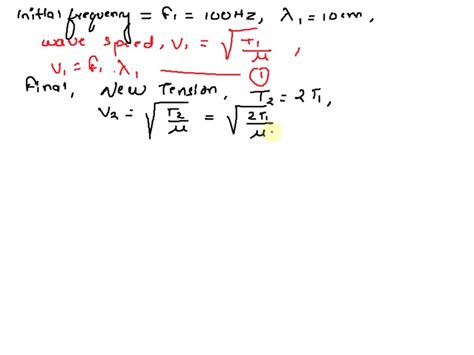 initial frequency = f₁ = 100Hz, λ₁ = 10cm,
wave speed, V₁ = √(T₁/μ),
V₁ = f₁.λ₁ ——— ①
Final, New Tension, T₂ = 2T₁,
V₂ = √(T₂/μ) = √(2T₁/μ)